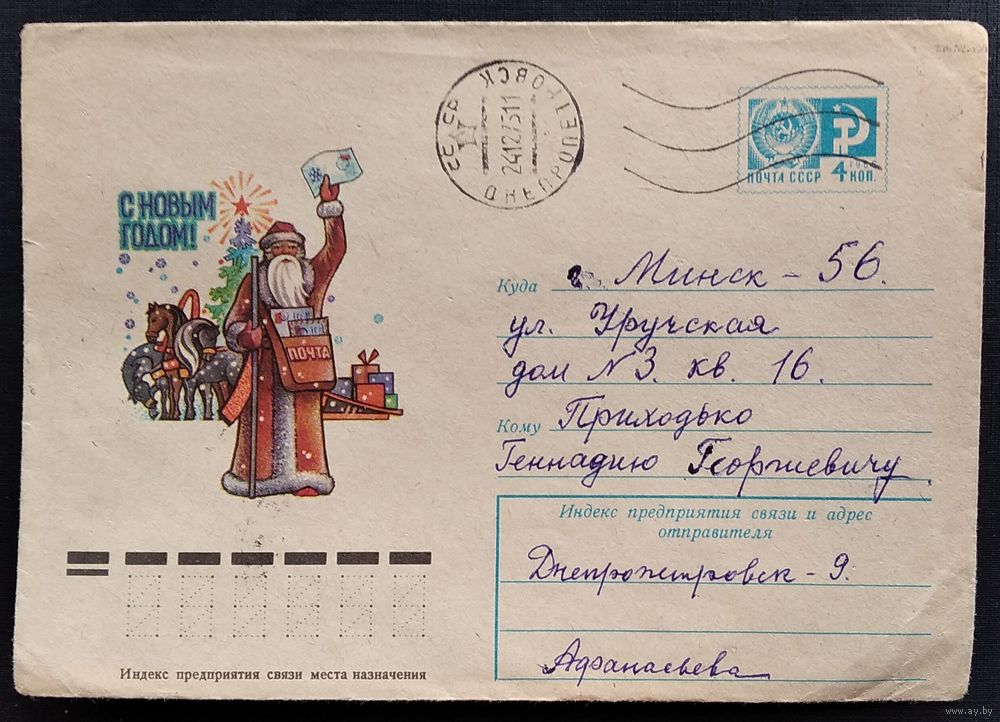 СССР
ДНЕПРОПЕТРОВСК
24127311
ПОЧТА СССР 4 КОП.
С НОВЫМ
ГОДОМ!
ПОЧТА
Куда г. Минск - 56.
ул. Уручская
дом N 3. кв. 16.
Кому Приходько
Геннадию Георгиевичу.
Индекс предприятия связи и адрес
отправителя
Днепропетровск - 9.
Афанасьева
Индекс предприятия связи места назначения
www.ay.by